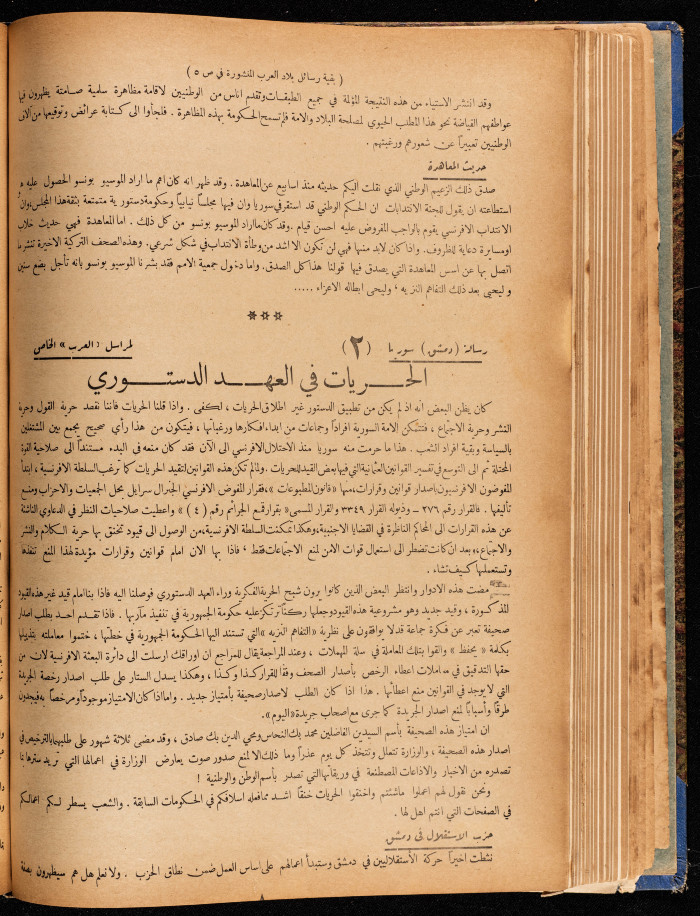 ( بقية رسائل بلاد العرب المنشورة في ص ٥ )
وقد انتشر الاستياء من هذه النتيجة المؤلمة في جميع الطبقات وتقدم اناس من الوطنيين لاقامة مظاهرة سلمية صامتة يظهرون فيها
عواطفهم الفياضة نحو هذا المطلب الحيوي لمصلحة البلاد والامة فلم تسمح الحكومة بهذه المظاهرة . فلجأوا الى كتابة عرائض وتوقيعها من آلاف
الوطنيين تعبيراً عن شعورهم ورغبتهم .
حديث المعاهدة
صدق ذلك الزعيم الوطني الذي نقلت اليكم حديثه منذ اسابيع عن المعاهدة . وقد ظهر انه كان اهم ما اراد الموسيو بونسو الحصول عليه
استطاعته ان يقول للجنة الانتدابات ان الحكم الوطني قد استقر في سوريا وان فيها مجلساً نيابياً وحكومة دستورية متمتعة بثقة هذا المجلس، وان
الانتداب الافرنسي يقوم بالواجب المفروض عليه احسن قيام . وقد كان ما اراد الموسيو بونسو من كل ذلك . اما المعاهدة فهي حديث خلاب
او مسايرة دعاية للظروف. واذا كان لابد منها فهي لن تكون الا اشد من وطأة الانتداب في شكل شرعي. وهذه الصحف التركية الاخيرة تنشر ما
اتصل بها عن اسس المعاهدة التي يصدق فيها قولنا هذا كل الصدق. واما دخول جمعية الامم فقد بشرنا الموسيو بونسو بانه تأجل بضع سنين
وليحيى بعد ذلك التفاهم النزيه ، وليحى ابطاله الاعزاء .....
***
رسالة ( دمشق ) سوريا (٢) لمراسل «العرب» الخاص
الحريات في العهد الدستوري
كان يظن البعض انه اذ لم يكن من تطبيق الدستور غير اطلاق الحريات ، لكفى . واذا قلنا الحريات فاننا نقصد حرية القول وحرية
النشر وحرية الاجتماع ، فتتمكن الامة السورية افراداً وجماعات من ابداء افكارها ورغباتها ، فيتكون من هذا رأي صحيح يجمع بين المشتغلين
بالسياسة وبقية افراد الشعب . هذا ما حرمت منه سوريا منذ الاحتلال الافرنسي الى الآن فقد كان منعه في البدء مستنداً الى صلاحية القوة
المحتلة ثم الى التوسع في تفسير القوانين العثمانية التي فيها بعض القيد للحريات . ولما لم تكن هذه القوانين لتقيد الحريات كما ترغب السلطة الافرنسية ، ابتدأ
المفوضون الافرنسيون باصدار قوانين وقرارات، منها «قانون المطبوعات» ، فقرار المفوض الافرنسي الجنرال سرايل بحل الجمعيات والاحزاب ومنع
تأليفها . فالقرار رقم ٢٧٦ – وذيوله القرار ٣٣٤٩ والقرار المسمى «بقرار قمع الجرائم رقم ( ٤ ) » واعطيت صلاحيات النظر في الدعاوي الناشئة
عن هذه القرارات الى المحاكم الناظرة في القضايا الاجنبية، وهكذا تمكنت السلطة الافرنسية، من الوصول الى قيود تخنق بها حرية الكلام والنشر
والاجتماع، بعد ان كانت تضطر الى استعمال قوات الامن لمنع الاجتماعات فقط ، فاذا بها الان امام قوانين وقرارات مؤيدة لهذا المنع تنفذها
وتستعملها كيف تشاء .
مضت هذه الادوار وانتظر البعض الذين كانوا يرون شبح الحرية الفكرية وراء العهد الدستوري فوصلنا اليه فاذا بنا امام قيد غير هذه القيود
المذكورة ، وقيد جديد وهو مشروعية هذه القيود وجعلها ركناً ترتكز عليه حكومة الجمهورية في تنفيذ مآربها . فاذا تقدم احد بطلب اصدار
صحيفة تعبر عن فكرة جماعة قد لا يوافقون على نظرية « التفاهم النزيه » التي تستند اليها الحكومة الجمهورية في خطتها ، ختموا معاملته بنظريتها
بكلمة « يحفظ » والقوا بتلك المعاملة في سلة المهملات ، وعند المراجعة يقال للمراجع ان اوراقك ارسلت الى دائرة البعثة الافرنسية لان من
حقها التدقيق في معاملات اعطاء الرخص بأصدار الصحف وفقاً للقرار كذا وكذا ، وهكذا يسدل الستار على طلب اصدار رخصة الجريدة
التي لا يوجد في القوانين منع اعطائها . هذا اذا كان الطلب لاصدار صحيفة بأمتياز جديد . واما اذا كان الامتياز موجوداً ومرخصاً به فيجدون
طرقاً وأسباباً لمنع اصدار الجريدة كما جرى مع اصحاب جريدة «اليوم» .
ان امتياز هذه الصحيفة بأسم السيدين الفاضلين محمد بك النحاس ومحي الدين بك صادق ، وقد مضى ثلاثة شهور على طلبهما بالترخيص في
اصدار هذه الصحيفة ، والوزارة تتعلل وتتخذ كل يوم عذراً وما ذلك الا لمنع صدور صوت يعارض الوزارة في اعمالها التي تريد سترها بما
تصدره من الاخبار والاذاعات المصطنعة في وريقاتها التي تصدر بأسم الوطن والوطنية !
ونحن نقول لهم اعملوا ما شئتم واخنقوا الحريات خنقاً اشد مما فعله اسلافكم في الحكومات السابقة . والشعب يسطر لكم اعمالكم
في الصفحات التي انتم اهل لها .
حزب الاستقلال في دمشق
نشطت اخيراً حركة الأستقلاليين في دمشق وستبدأ اعمالهم على اساس العمل ضمن نطاق الحزب . ولا نعلم هل هم سيظهرون بصفة